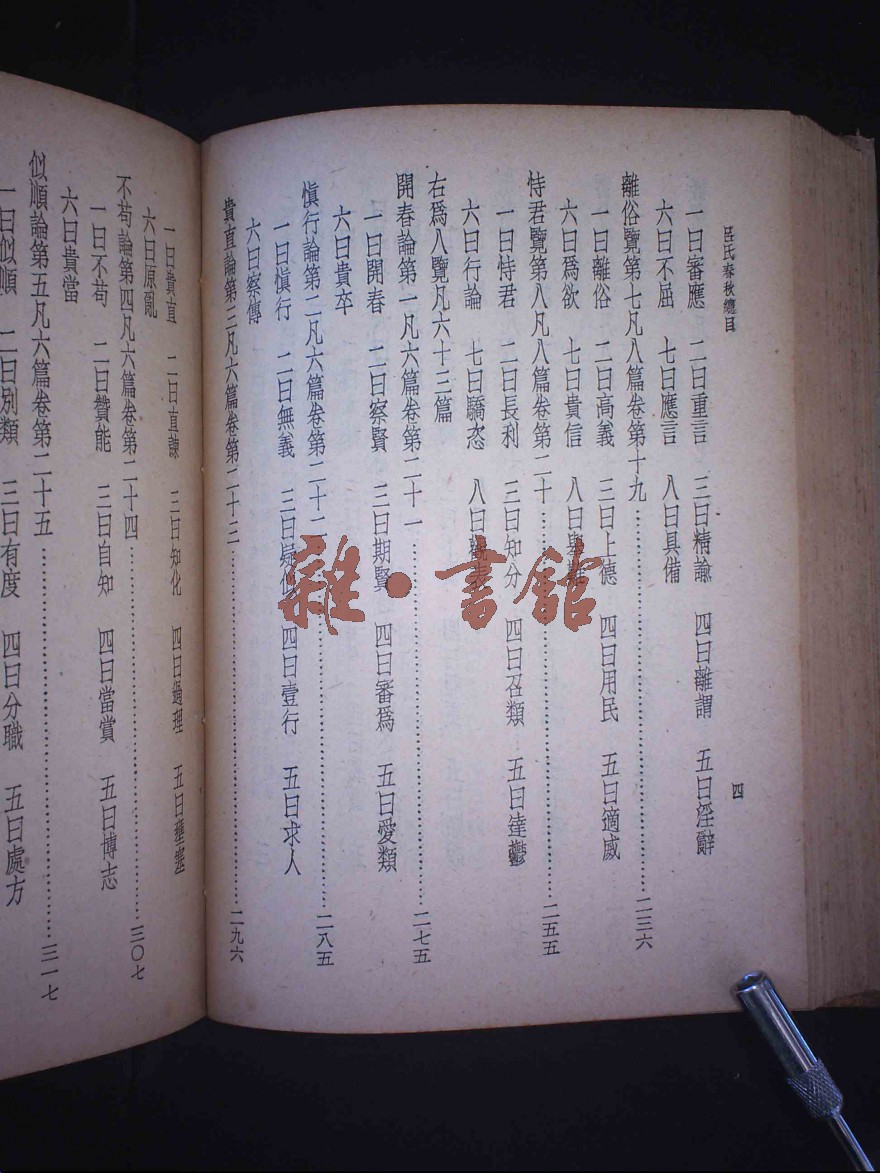 呂氏春秋總目
四
一曰審應 二曰重言 三曰精諭 四曰離謂 五曰淫辭
六曰不屈 七曰應言 八曰具備
離俗覽第七凡八篇卷第十九……二三六
一曰離俗 二曰高義 三曰上德 四曰用民 五曰適威
六曰爲欲 七曰貴信 八曰舉難
恃君覽第八凡八篇卷第二十……二五五
一曰恃君 二曰長利 三曰知分 四曰召類 五曰達鬱
六曰行論 七曰驕恣 八曰觀表
右爲八覽凡六十三篇
開春論第一凡六篇卷第二十一……二七五
一曰開春 二曰察賢 三曰期賢 四曰審爲 五曰愛類
六曰貴卒
愼行論第二凡六篇卷第二十二……二八五
一曰愼行 二曰無義 三曰疑似 四曰壹行 五曰求人
六曰察傳
貴直論第三凡六篇卷第二十三……二九六
一曰貴直 二曰直諫 三曰知化 四曰過理 五曰壅塞
六曰原亂
不苟論第四凡六篇卷第二十四……三〇七
一曰不苟 二曰贊能 三曰自知 四曰當賞 五曰博志
六曰貴當
似順論第五凡六篇卷第二十五……三一七
一曰似順 二曰別類 三曰有度 四曰分職 五曰處方
雜·書館